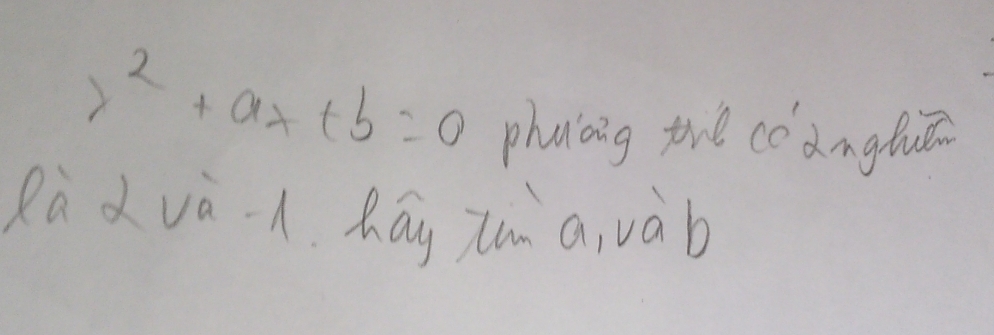 x² + ax + b = 0 phương trì có 2 nghiệm
là 2 và -1. hãy tìm a, và b